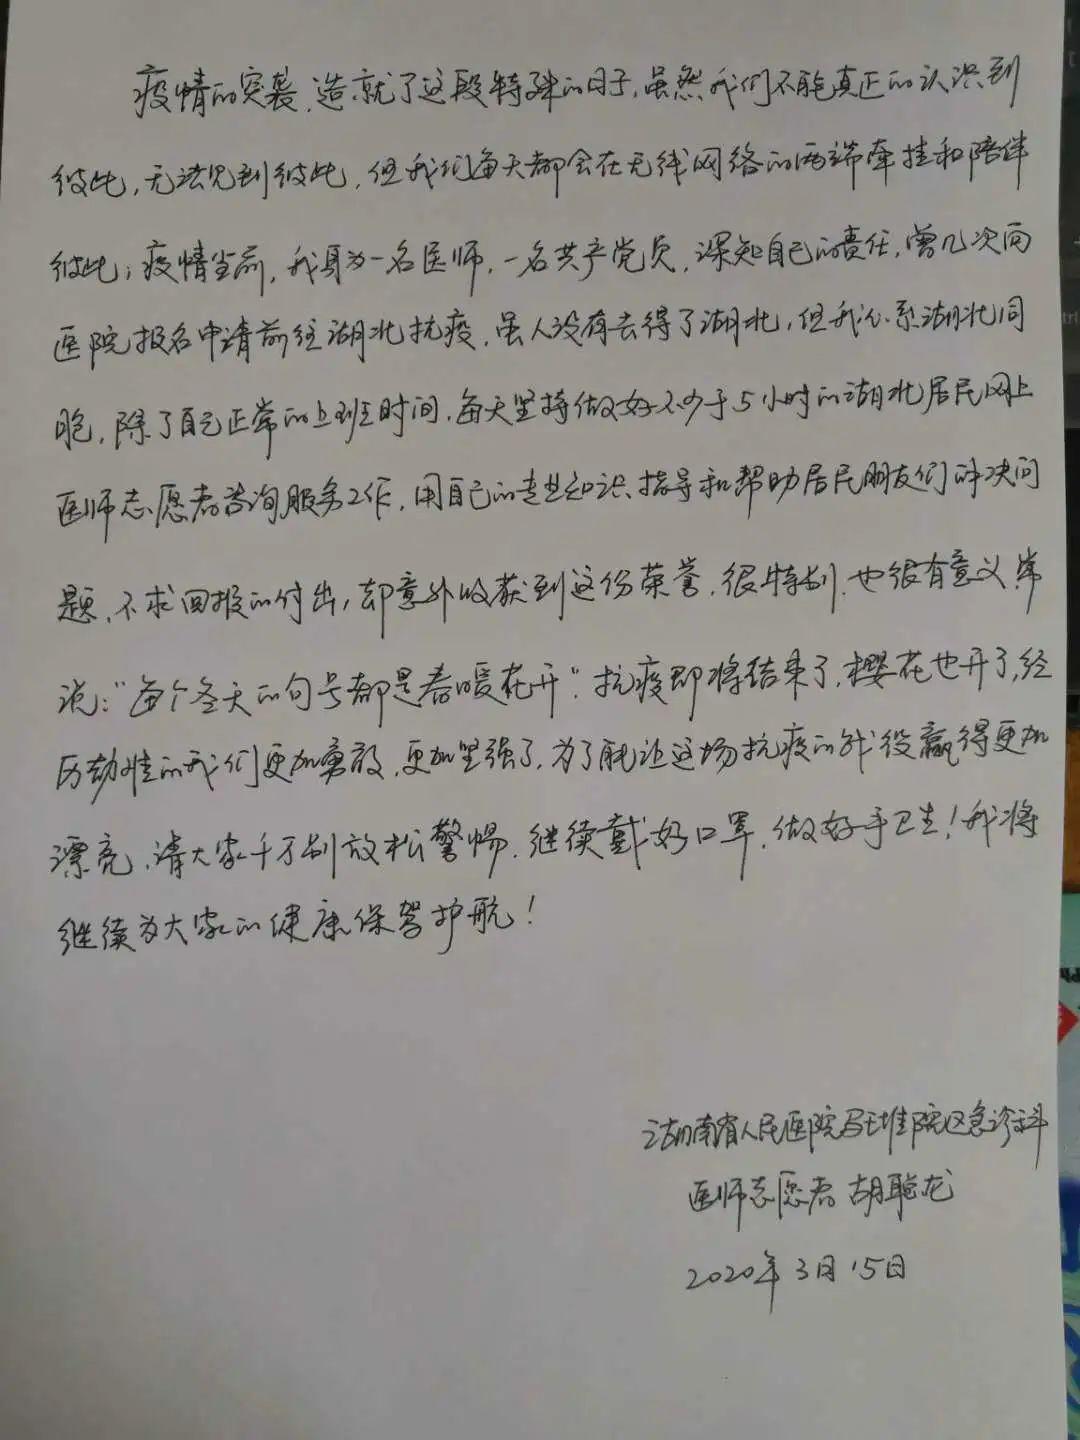 疫情的突袭,造就了这段特殊的日子,虽然我们不能真正的认识到
彼此,无法见到彼此,但我们每天都会在无线网络的两端牵挂和陪伴
彼此;疫情当前,我身为一名医师,一名共产党员,深知自己的责任,曾几次向
医院报名申请前往湖北抗疫,虽人没有去得了湖北,但我心系湖北同
胞,除了自己正常的上班时间,每天坚持做好不少于5小时的湖北居民网上
医师志愿者咨询服务工作,用自己的专业知识指导和帮助居民朋友们解决问
题,不求回报的付出,却意外收获到这份荣誉,很特别,也很有意义,常
说:“每个冬天的句号都是春暖花开”.抗疫即将结束了,樱花也开了,经
历劫难的我们更加勇敢,更加坚强了,为了能让这场抗疫的战役赢得更加
漂亮,请大家千万别放松警惕,继续戴好口罩,做好手卫生!我将
继续为大家的健康保驾护航!
湖南省人民医院马王堆院区急诊科
医师志愿者 胡聪龙
2020年3月15日